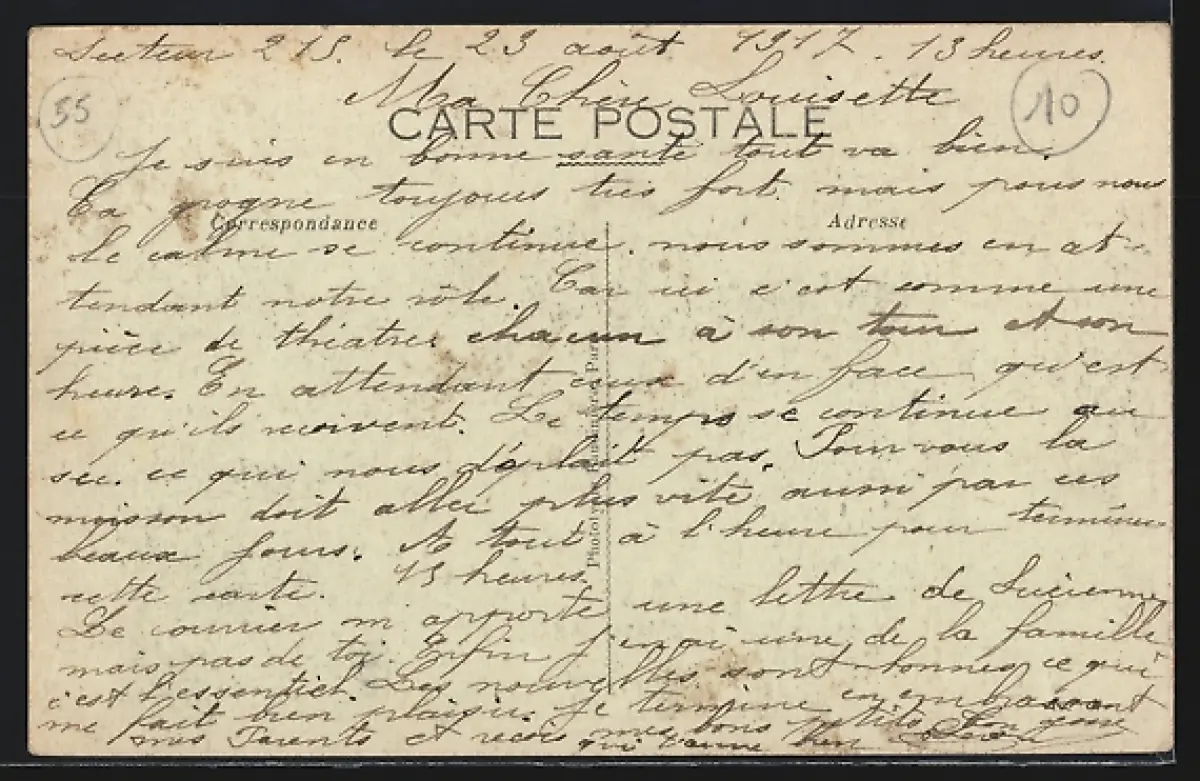 Secteur 215. le 23 août 1917. 13 heures.
55
10
Ma Chère Louisette
CARTE POSTALE
Je suis en bonne santé tout va bien.
Ca grogne toujours très fort. mais pour nous
Correspondance
Adresse
le calme se continue. nous sommes en at-
tendant notre rôle. Car ici c'est comme une
pièce de théatre. chacun à son tour et son
heure. En attendant ceux d'en face qu'est
ce qu'ils recoivent. Le temps se continue au
sec. ce qui nous déplait pas. Pour vous la
moisson doit aller plus vite aussi par ces
beaux jours. A tout à l'heure pour terminer
cette carte. 15 heures.
Le courrier m apporte une lettre de Lucienne
mais pas de toi. Enfin j'en ai une de la famille
c'est l'essentiel. Les nouvelles sont bonnes ce qui
me fait bien plaisir. Je termine en embrassant
mes Parents et recois mes bons petits
qui t'aime bien